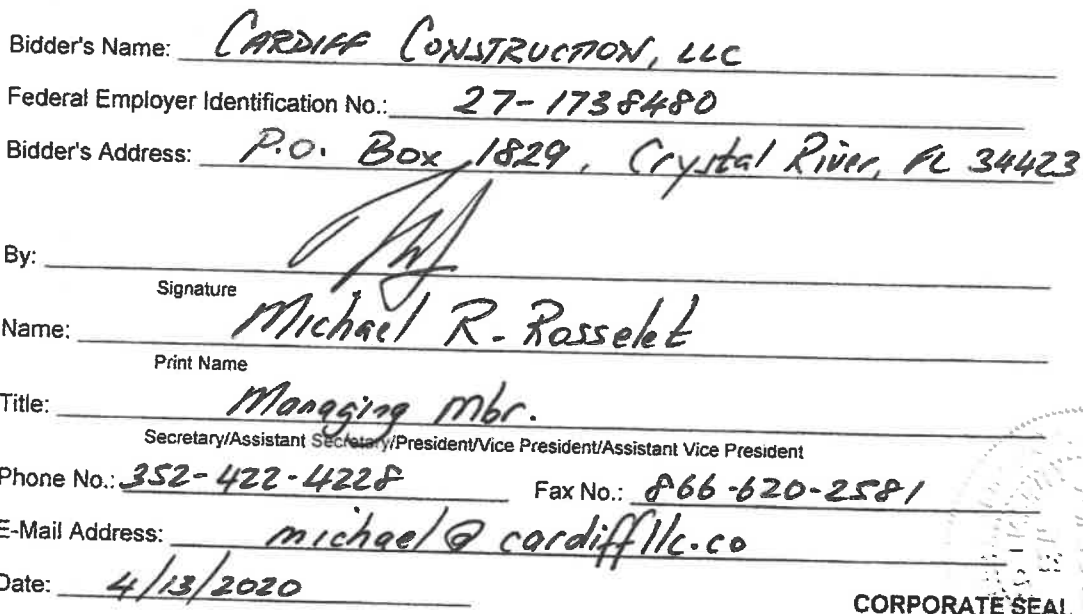 Bidder's Name: CARDIFF CONSTRUCTION, LLC
Federal Employer Identification No.: 27-1738480
Bidder's Address: P.O. Box 1829, Crystal River, FL 34423
By:
Signature
Name: Michael R. Rosselet
Print Name
Title: Managing Mbr.
Secretary/Assistant Secretary/President/Vice President/Assistant Vice President
Phone No.: 352-422-4228 Fax No.: 866-620-2581
E-Mail Address: michael@cardiffllc.co
Date: 4/13/2020
CORPORATE SEAL